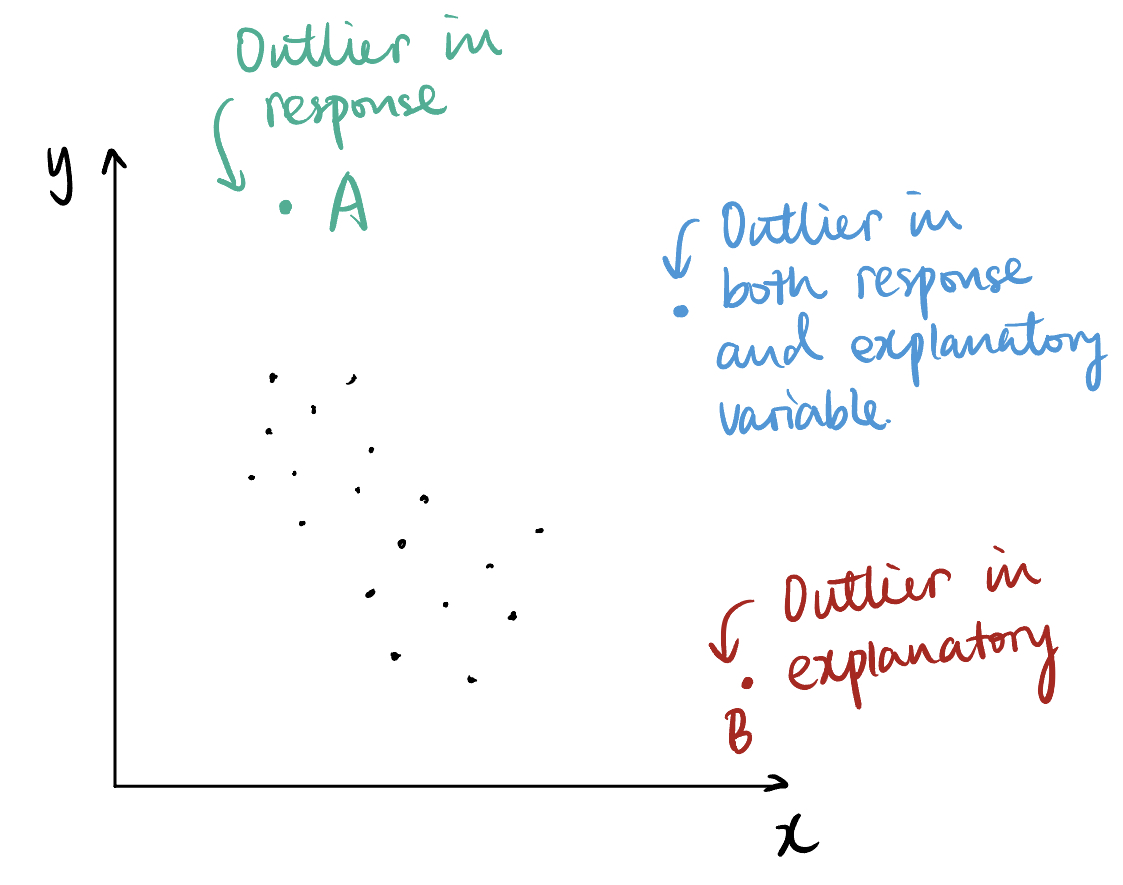 Outlier in
response
A
y
Outlier in
both response
and explanatory
variable.
Outlier in
explanatory
B
x